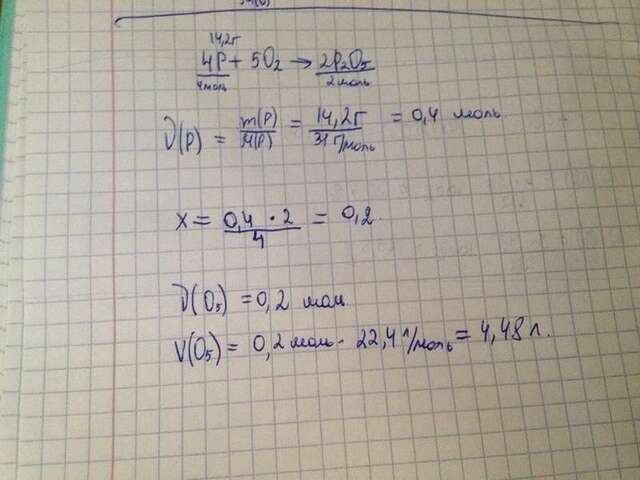 14,2г
4P + 5O₂ → 2P₂O₅
4моль 2моль
ν(P) = m(P)/M(P) = 14,2г/31г/моль = 0,4 моль
x = 0,4 · 2/4 = 0,2.
ν(O₅) = 0,2 мол.
V(O₅) = 0,2 моль · 22,4 л/моль = 4,48 л.